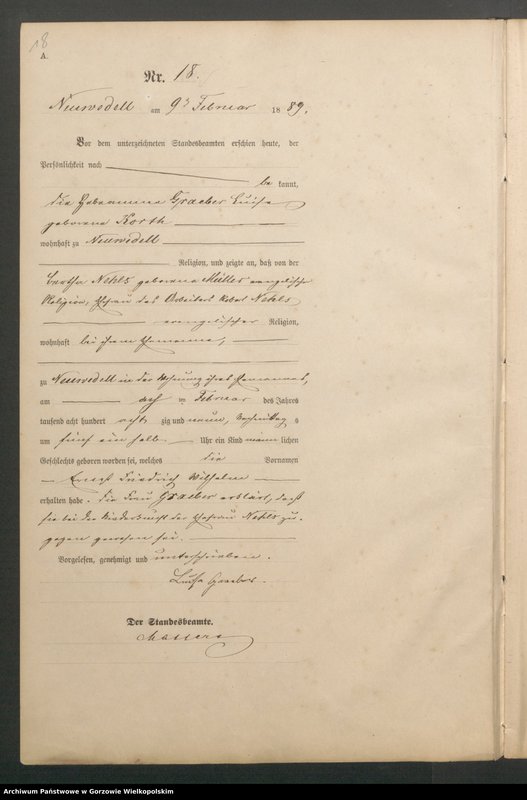 18
A.
Nr. 18.
Neuwedell am 9ten Februar 1889.
Vor dem unterzeichneten Standesbeamten erschien heute, der
Persönlichkeit nach
be kannt,
die Hebamme Graeber Luise
geborene Korth
wohnhaft zu Neuwedell
Religion, und zeigte an, daß von der
Bertha Nehls geborene Müller evangelischer
Religion, Ehefrau des Arbeiters Robert Nehls
evangelischer Religion,
wohnhaft bei ihrem Ehemanne,
zu Neuwedell in der Wohnung ihres Ehemannes,
am acht en Februar des Jahres
tausend acht hundert acht zig und neun, Vormittag s
um fünf ein halb Uhr ein Kind männ lichen
Geschlechts geboren worden sei, welches die Vornamen
Ernst Friedrich Wilhelm
erhalten habe. Die Frau Graeber erklärt, daß
sie bei der Niederkunft der Ehefrau Nehls zu-
gegen gewesen sei.
Vorgelesen, genehmigt und unterschrieben.
Luise Graeber.
Der Standesbeamte.
Archiwum Państwowe w Gorzowie Wielkopolskim